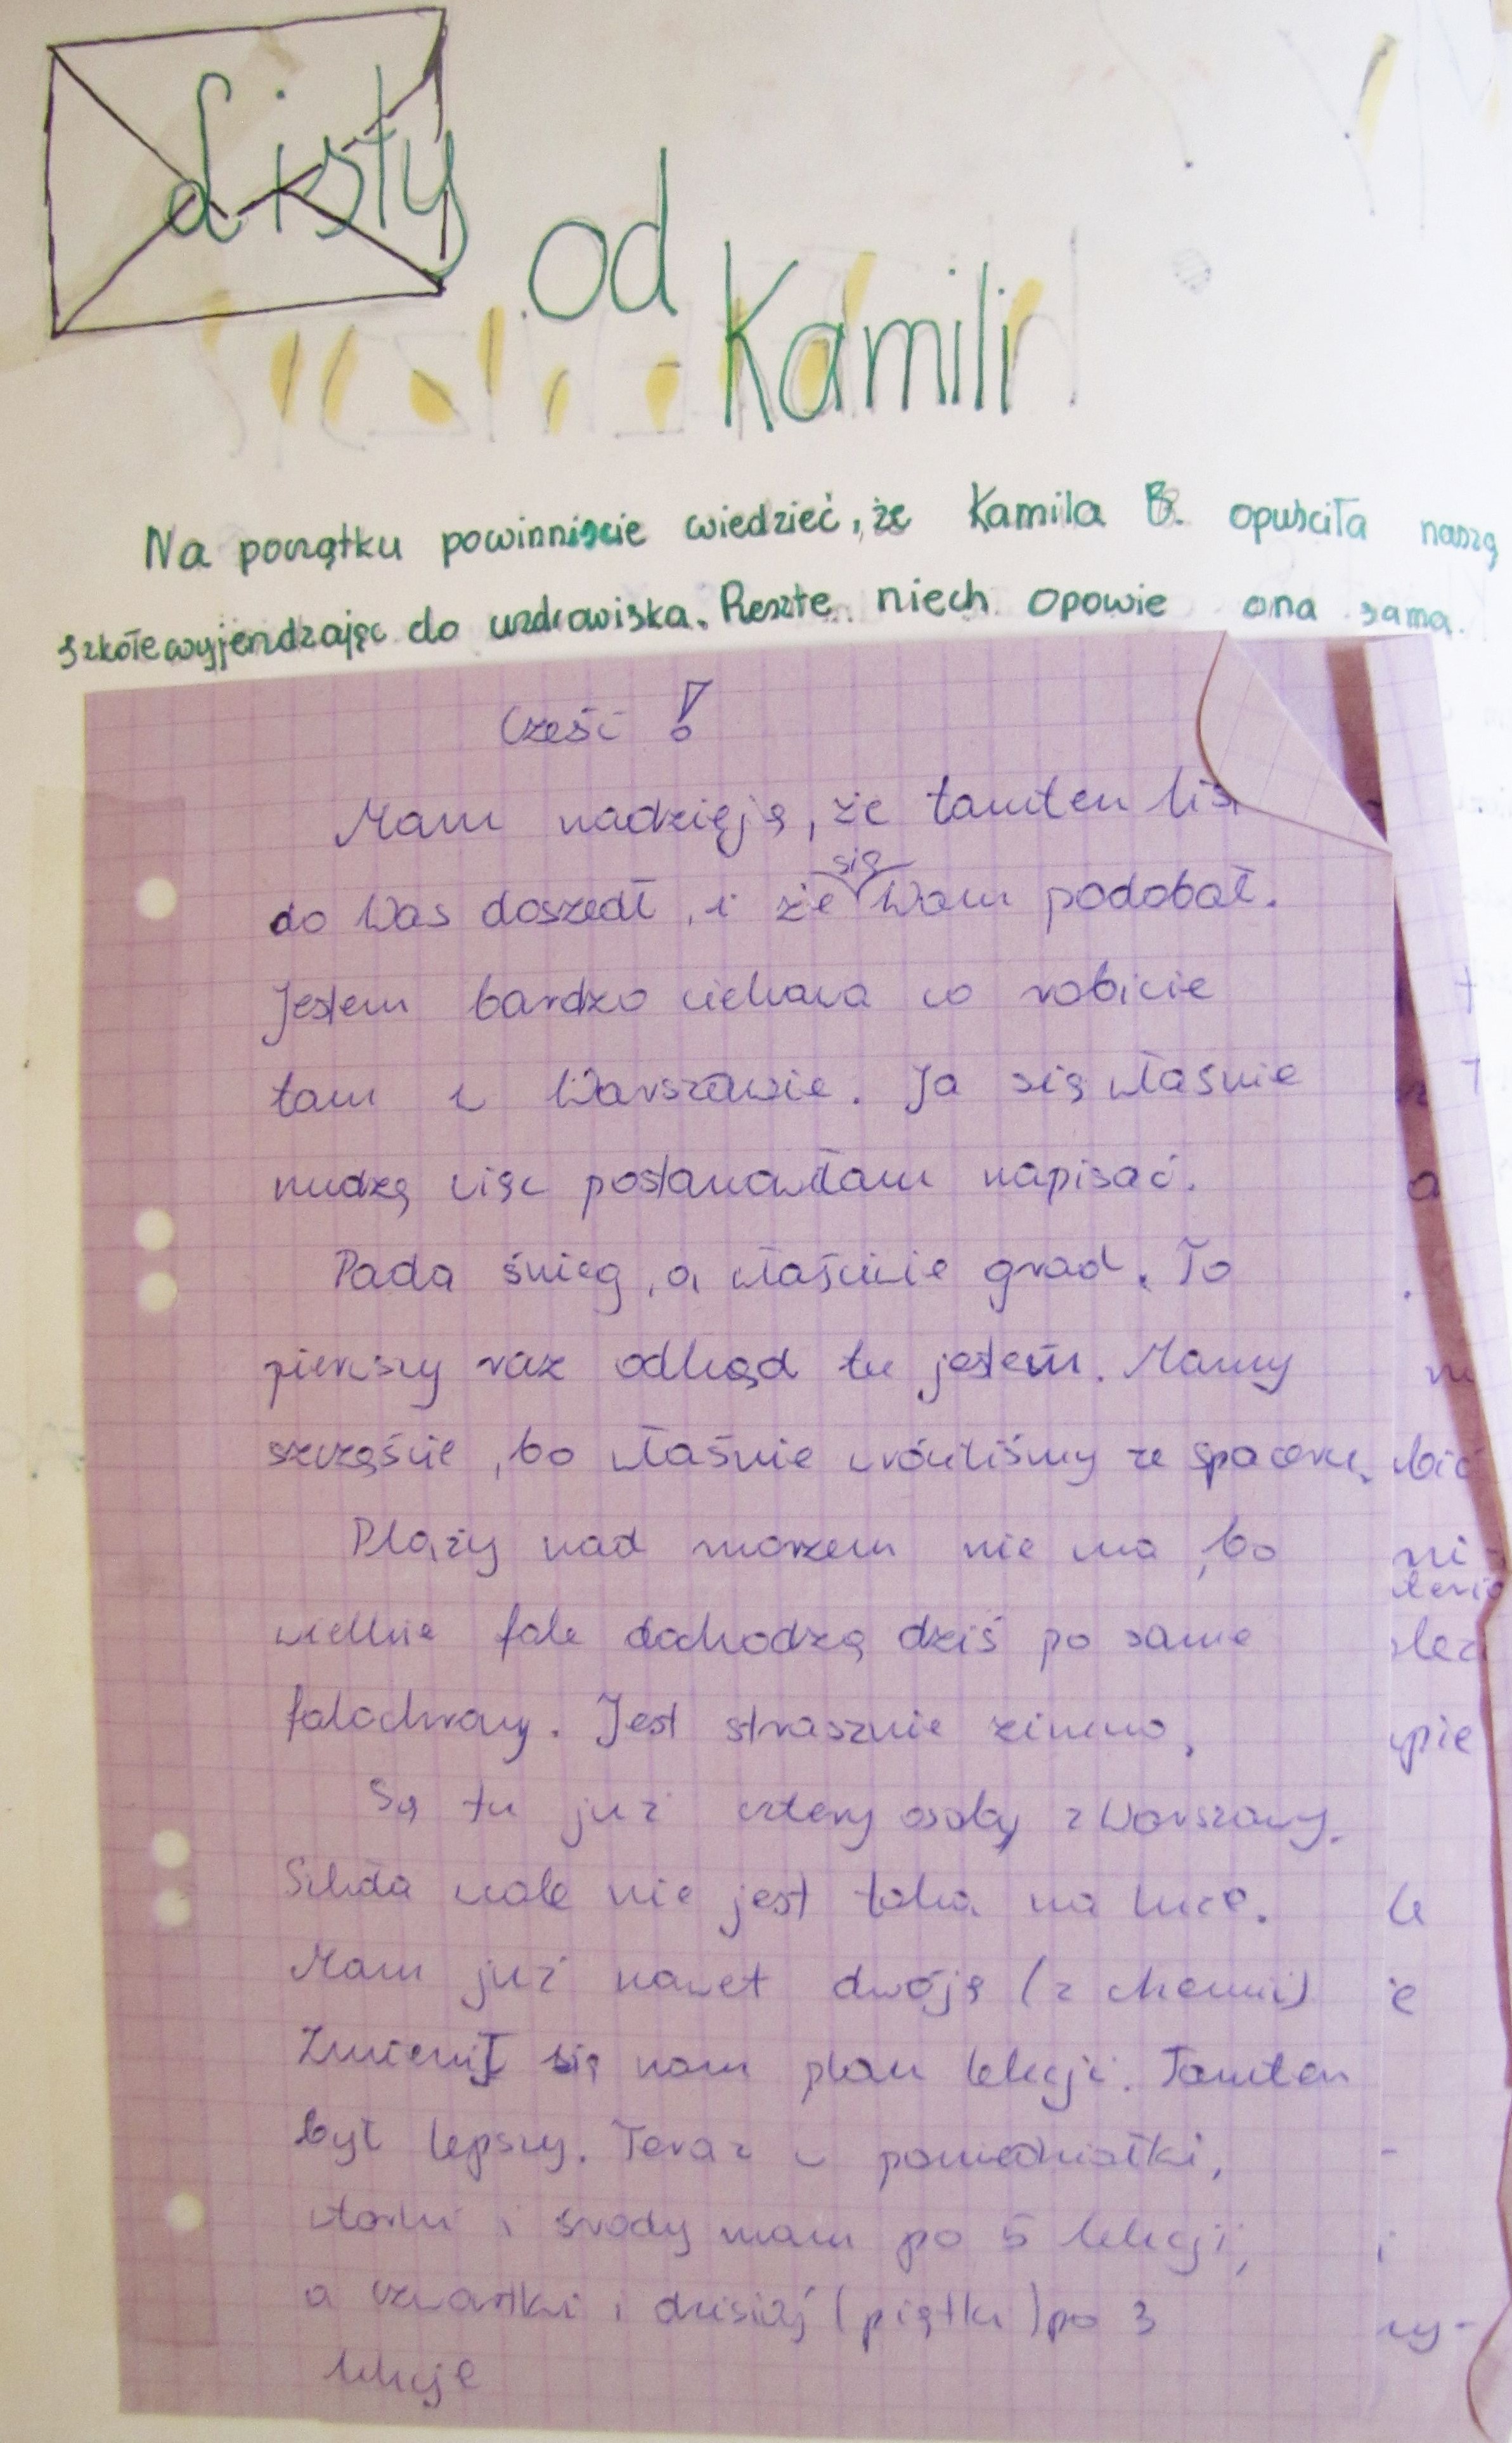 Listy
od
Kamili
Na początku powinniście wiedzieć, że Kamila B. opuściła naszą
szkołę wyjeżdzając do uzdrowiska. Resztę niech opowie ona sama.
Cześć!
Mam nadzieję, że tamten list
do Was doszedł, i że się Wam podobał.
Jestem bardzo ciekawa co robicie
tam w Warszawie. Ja się właśnie
nudzę więc postanawiłam napisać.
Pada śnieg, a właściwie grad. To
pierwszy raz odkąd tu jestem. Mamy
szczęście, bo właśnie wróciliśmy ze spaceru.
Plaży nad morzem nie ma, bo
wielkie fale dochodzą dziś po same
falochrony. Jest strasznie zimno.
Są tu już cztery osoby z Warszawy.
Szkoła wcale nie jest taka na luce.
Mam już nawet dwóję (z chemii)
Zmienił się nam plan lekcji. Tamten
był lepszy. Teraz w poniedziałki,
wtorki i środy mam po 5 lekcji,
a czwartki i dzisiaj (piątki) po 3
lekcje